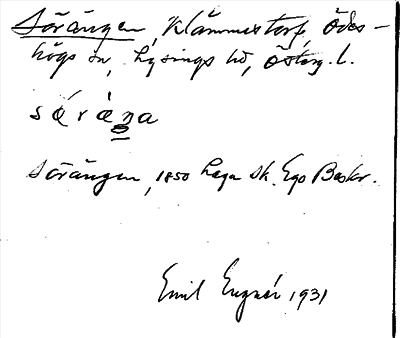 Sörängen, Klämmestorp, Ödes-
högs sn, Lysings hd, Österg. l.
sǿràŋa
Sörängen, 1850 laga sk. Ego Beskr.
Emil Engnér 1931